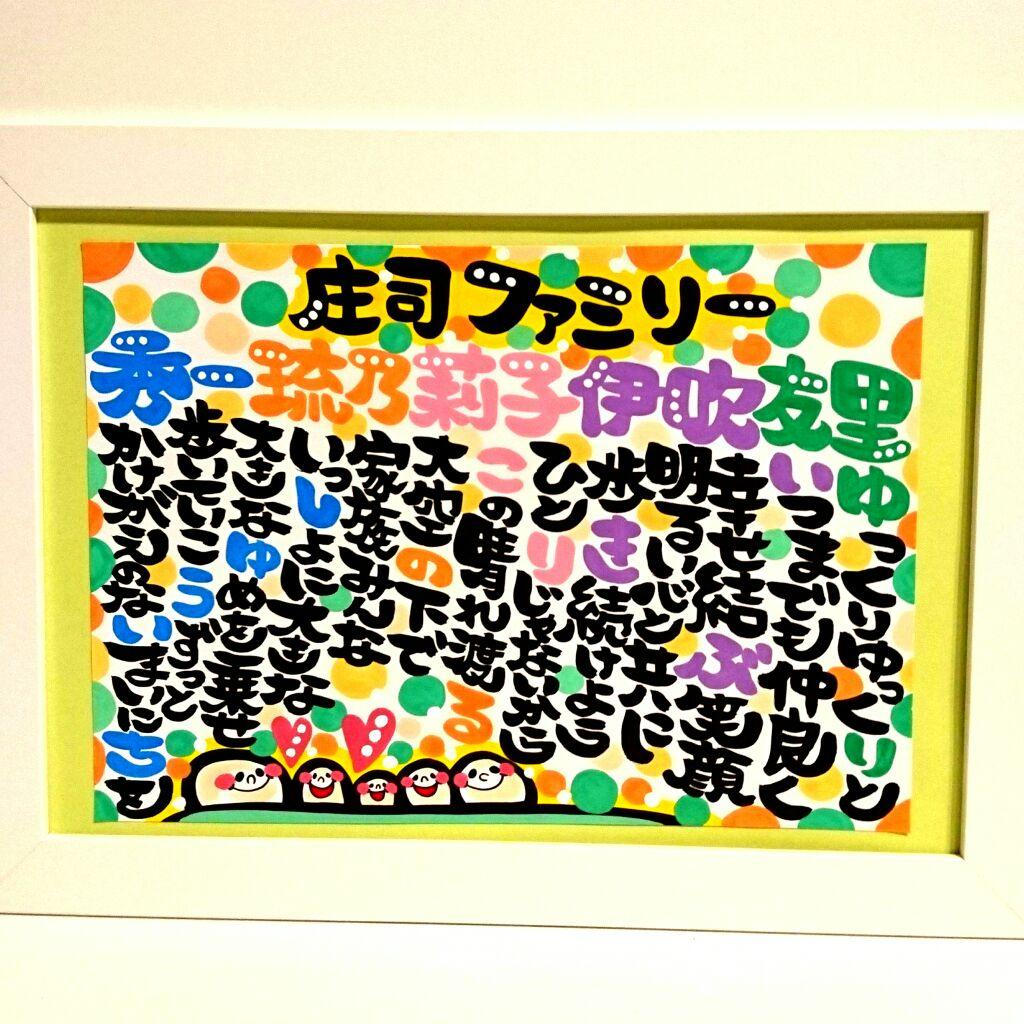 庄司ファミリー
秀一 琉乃 莉子 伊吹 友里
ゆっくりゆっくりと
いつまでも仲良く
幸せ結ぶ笑顔
明るい心と共に
歩き続けよう
ひとりじゃないから
この晴れ渡る
大空の下で
家族みんな
いっしょに大きな
大きなゆめを乗せ
歩いていこうずっと
かけがえのないまいにちを